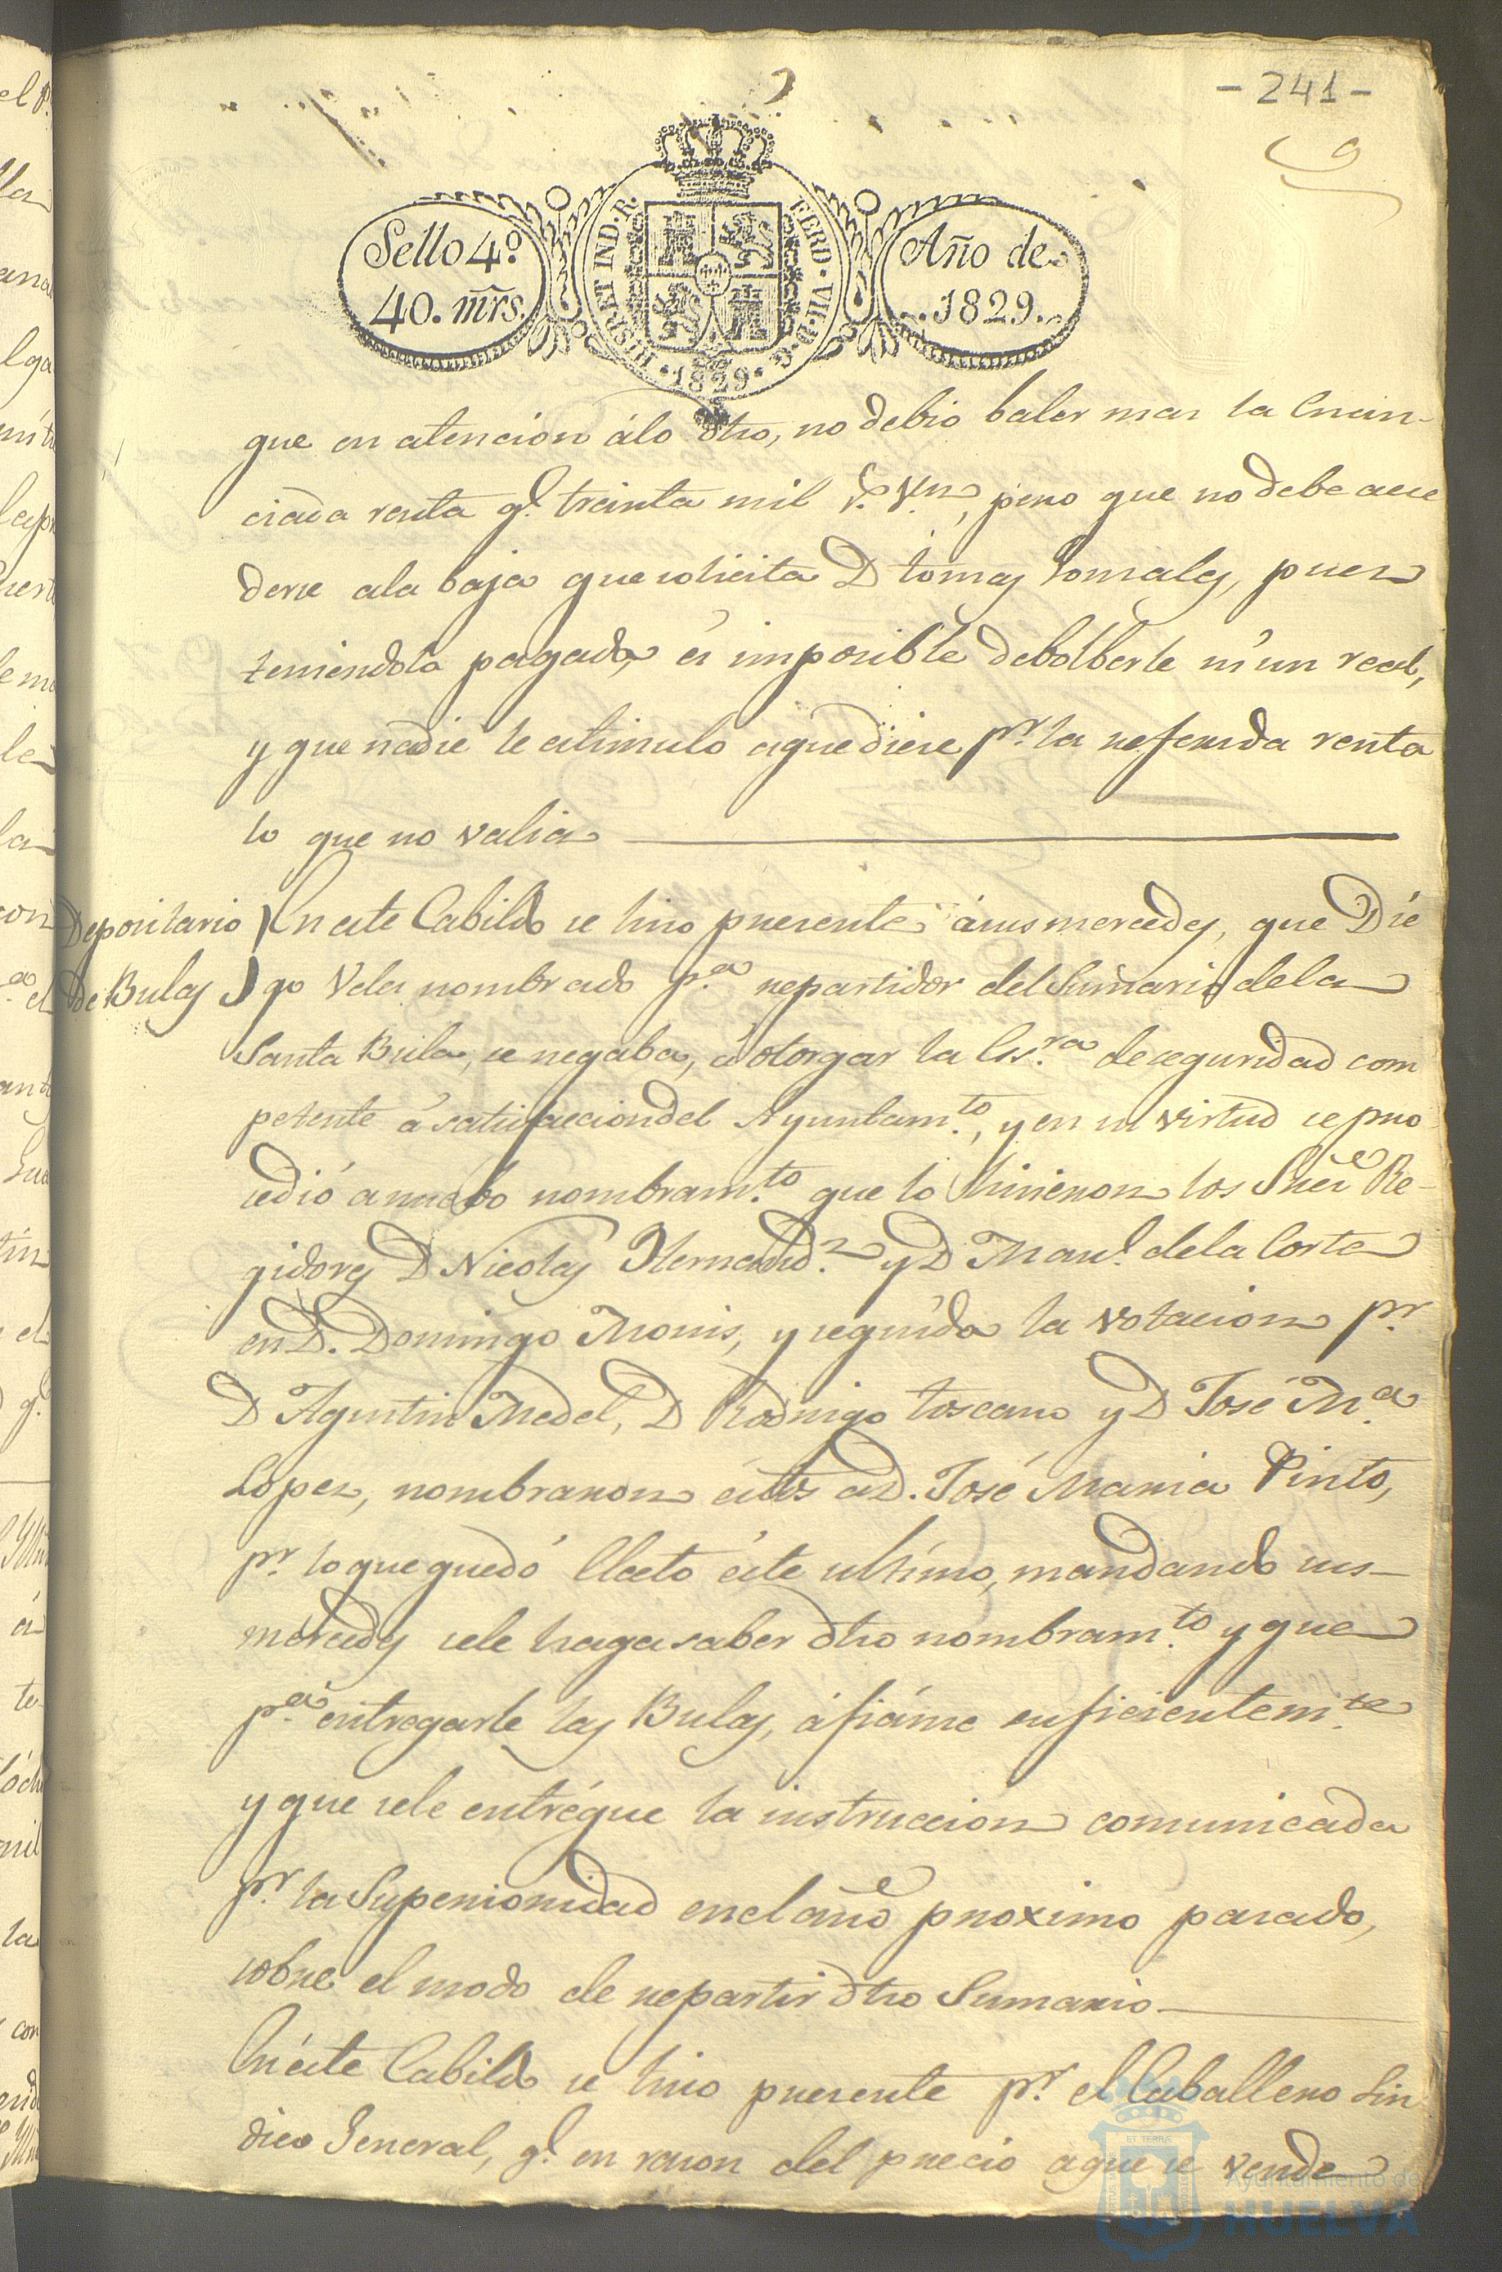 - 241 -
9
Sello 4º
40. mrs.
HISP. ET IND. R. FERD. VII. D. G.
1829
Año de
1829.
que en atencion álo dho, no debio baler mas la enun-
ciada renta q.e treinta mil r.s v.n, pero que no debe acce
derse ala baja que solicita D Tomas Gonsales, pues
teniendola pagada, es imposible debolberle ni un real,
y que nadie le estimulo aque diese p.r la referida renta
lo que no valia
Depositario
de Bulas
En este Cabildo se hiso presente ásus mercedes, que Die
go Vela nombrado p.a repartidor del Sumario dela
Santa Bula, se negaba, á otorgar la Es.ra de seguridad com
petente á satisfaccion del Ayuntam.to, y en su virtud se pro
cedió a nuebo nombram.to que lo hisieron los Señes Re-
gidores D Nicolas Hernand.z y D Man.l dela Corte
en D. Domingo Monis, y seguida la votacion p.r
D Agustin Medel, D Rodrigo Toscano y D José M.a
Lopez, nombraron estos a D. José Maria Pinto,
p.r lo que quedó Electo éste ultimo, mandando sus-
mercedes sele haga saber dho nombram.to y que
p.a entregarle las Bulas, áfiánse suficientem.te
y que sele entrégue la instruccion comunicada
p.r la Superioridad enel año proximo pasado,
sobre el modo de repartir dho Sumario
En éste Cabildo se hiso presente p.r el Caballero Sin
dico General, q.e en rason del precio aque se vende
Ayuntamiento de
HUELVA